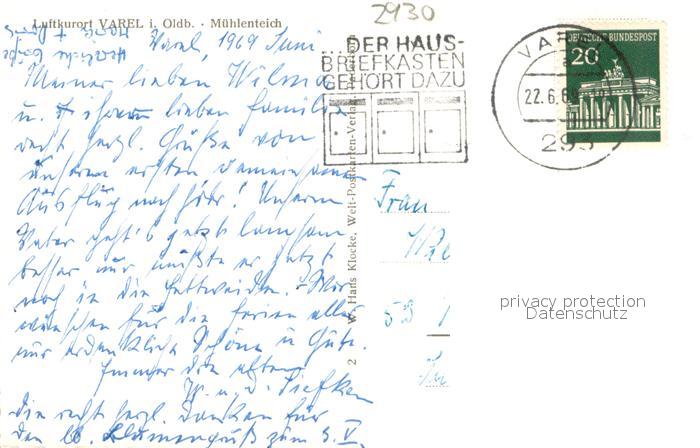 2930
Luftkurort VAREL i. Oldb. · Mühlenteich
Varel, 1969 Juni
Herzliche Grüße
Meiner lieben Wilma
u. ihrer lieben Familie
recht herzl. Grüße von
unserem ersten
Ausflug nach hier! Unserm
Vater geht's jetzt langsam
besser nur müßte er jetzt
noch in die Fettweiden. - Wir
wünschen für die Ferien alles
nur erdenklich Schöne u. Gute.
Immer die alten
W. u. d. Siefken
die recht herzl. Danken für
den lb. Blumengruß zum 5. V.
...DER HAUS-
BRIEFKASTEN
GEHÖRT DAZU
VAREL
22.6.69
293
DEUTSCHE BUNDESPOST
20
2 W. Hans Klocke, Welt-Postkarten-Verlag,
Frau
53
privacy protection
Datenschutz